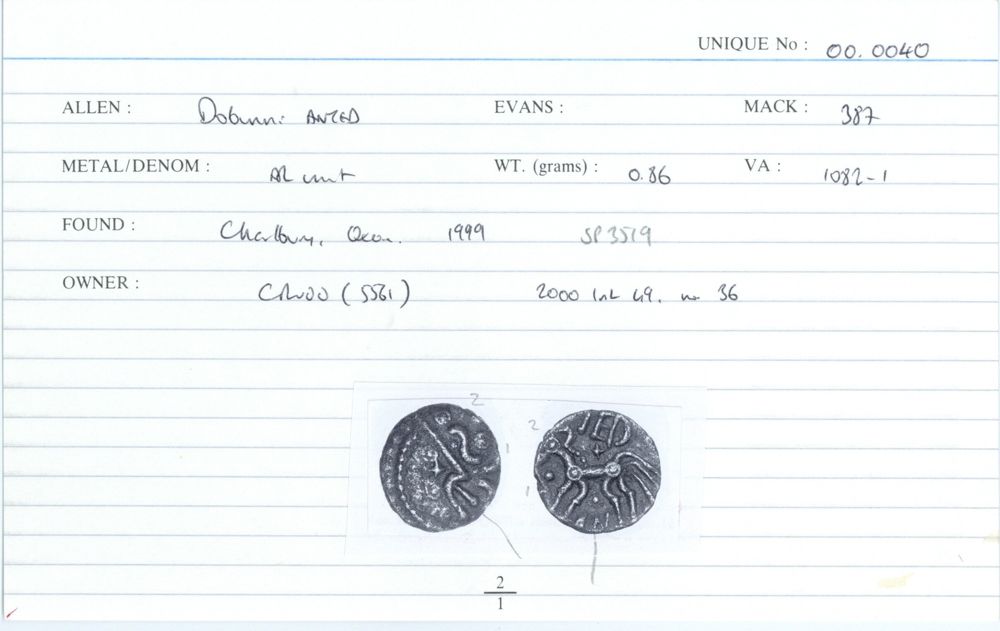 UNIQUE No : 00.0040
ALLEN : Dobunni ANTED EVANS : MACK : 387
METAL/DENOM : AR unit WT. (grams) : 0.86 VA : 1082-1
FOUND : Charlbury, Oxon. 1999 SP 3519
OWNER : (5561) 2000 49. no 36
2 2
1
1
IED
2
1